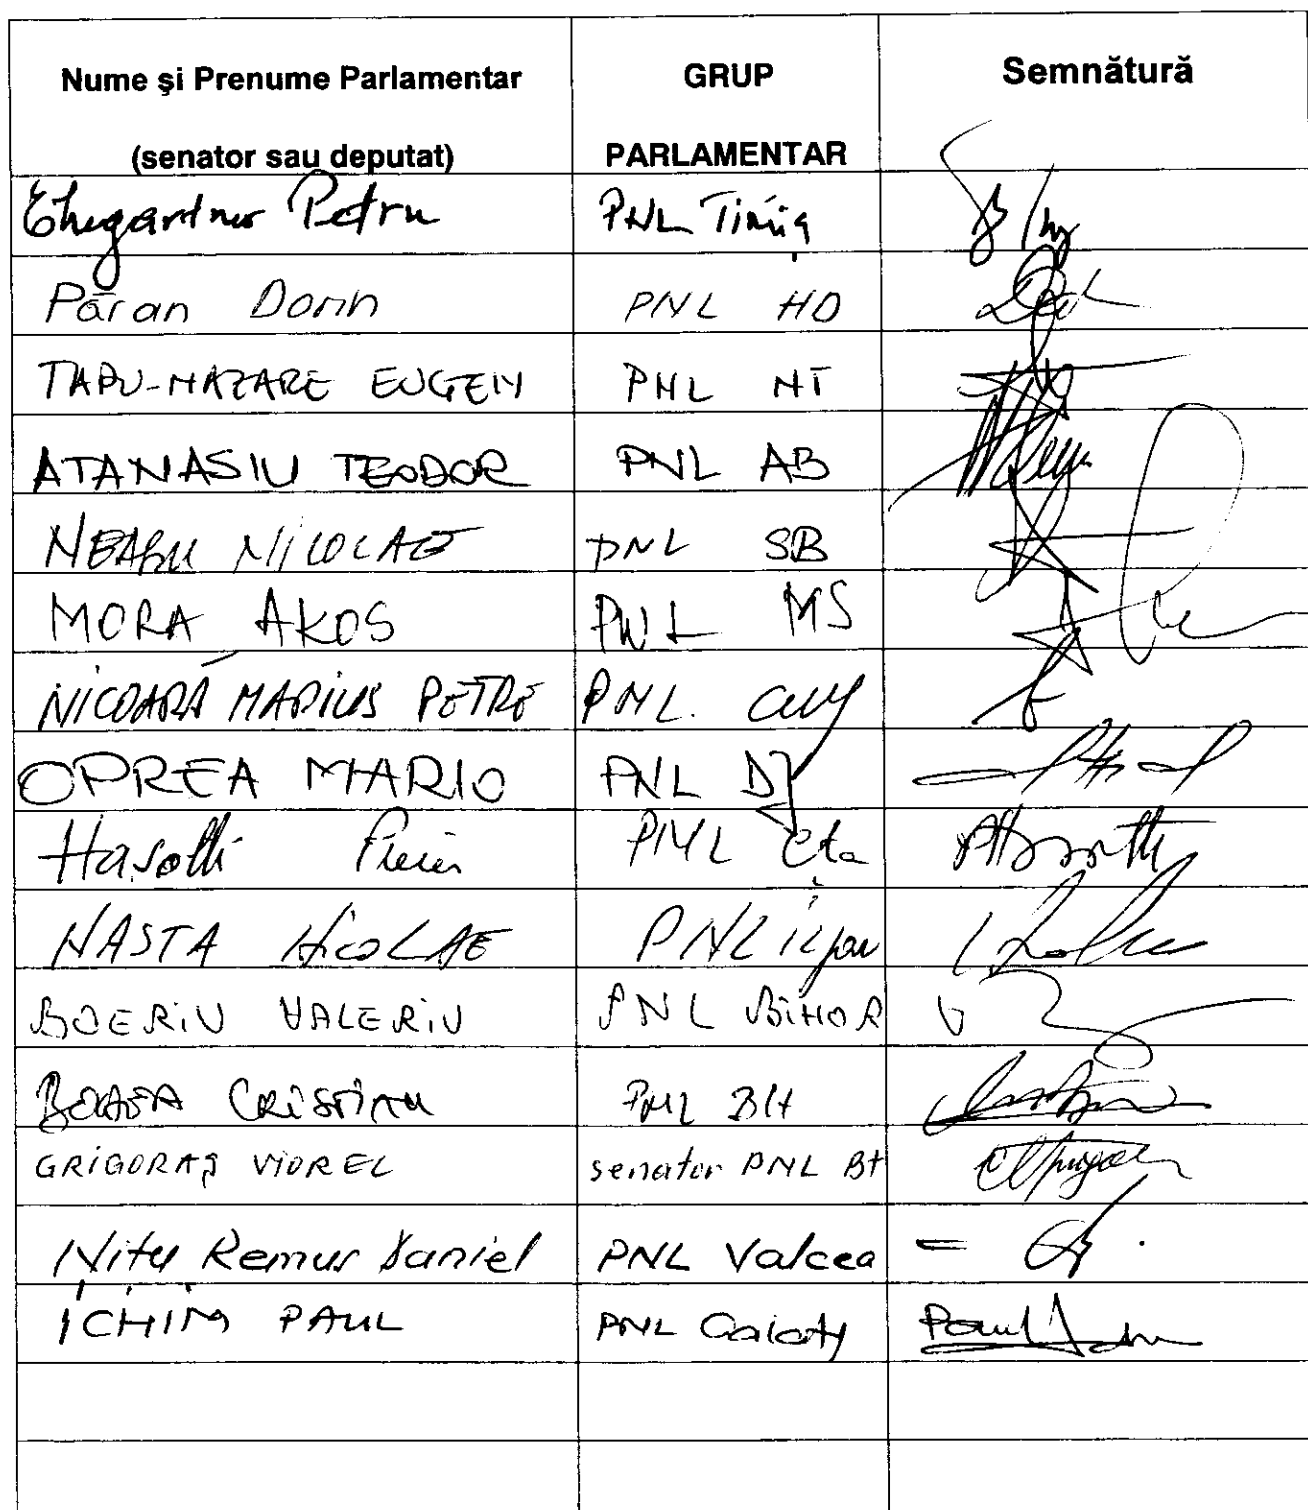 Nume și Prenume Parlamentar GRUP Semnătură
(senator sau deputat) PARLAMENTAR
Ehegartner Petru PNL Timiș
Păran Dorin PNL HD
TAPU-NAZARE EUGEN PNL NT
ATANASIU TEODOR PNL AB
NEAGU NICOLAE PNL SB
MORA AKOS PNL MS
NICOARĂ MARIUS PETRE PNL. Cluj
OPREA MARIO PNL DJ
Hasotti PNL Cta
NASTA NICOLAE PNL Ilfov
BOERIU VALERIU PNL BIHOR
CRISTIAN PNL BH
GRIGORAȘ VIOREL senator PNL BT
Nițu Remus Daniel PNL Valcea
ICHIM PAUL PNL Galați Paul